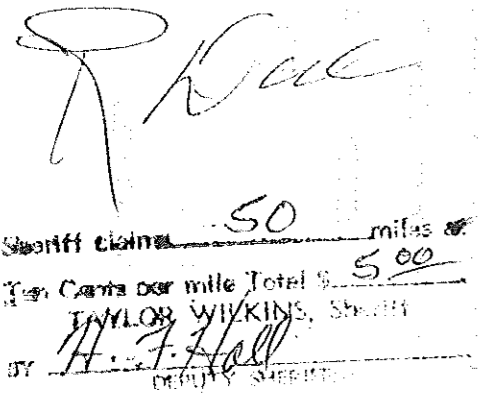 Sheriff claims 50 miles at
Ten Cents per mile Total $ 5 00
TAYLOR WILKINS, Sheriff
BY H. F. Hall
DEPUTY SHERIFF